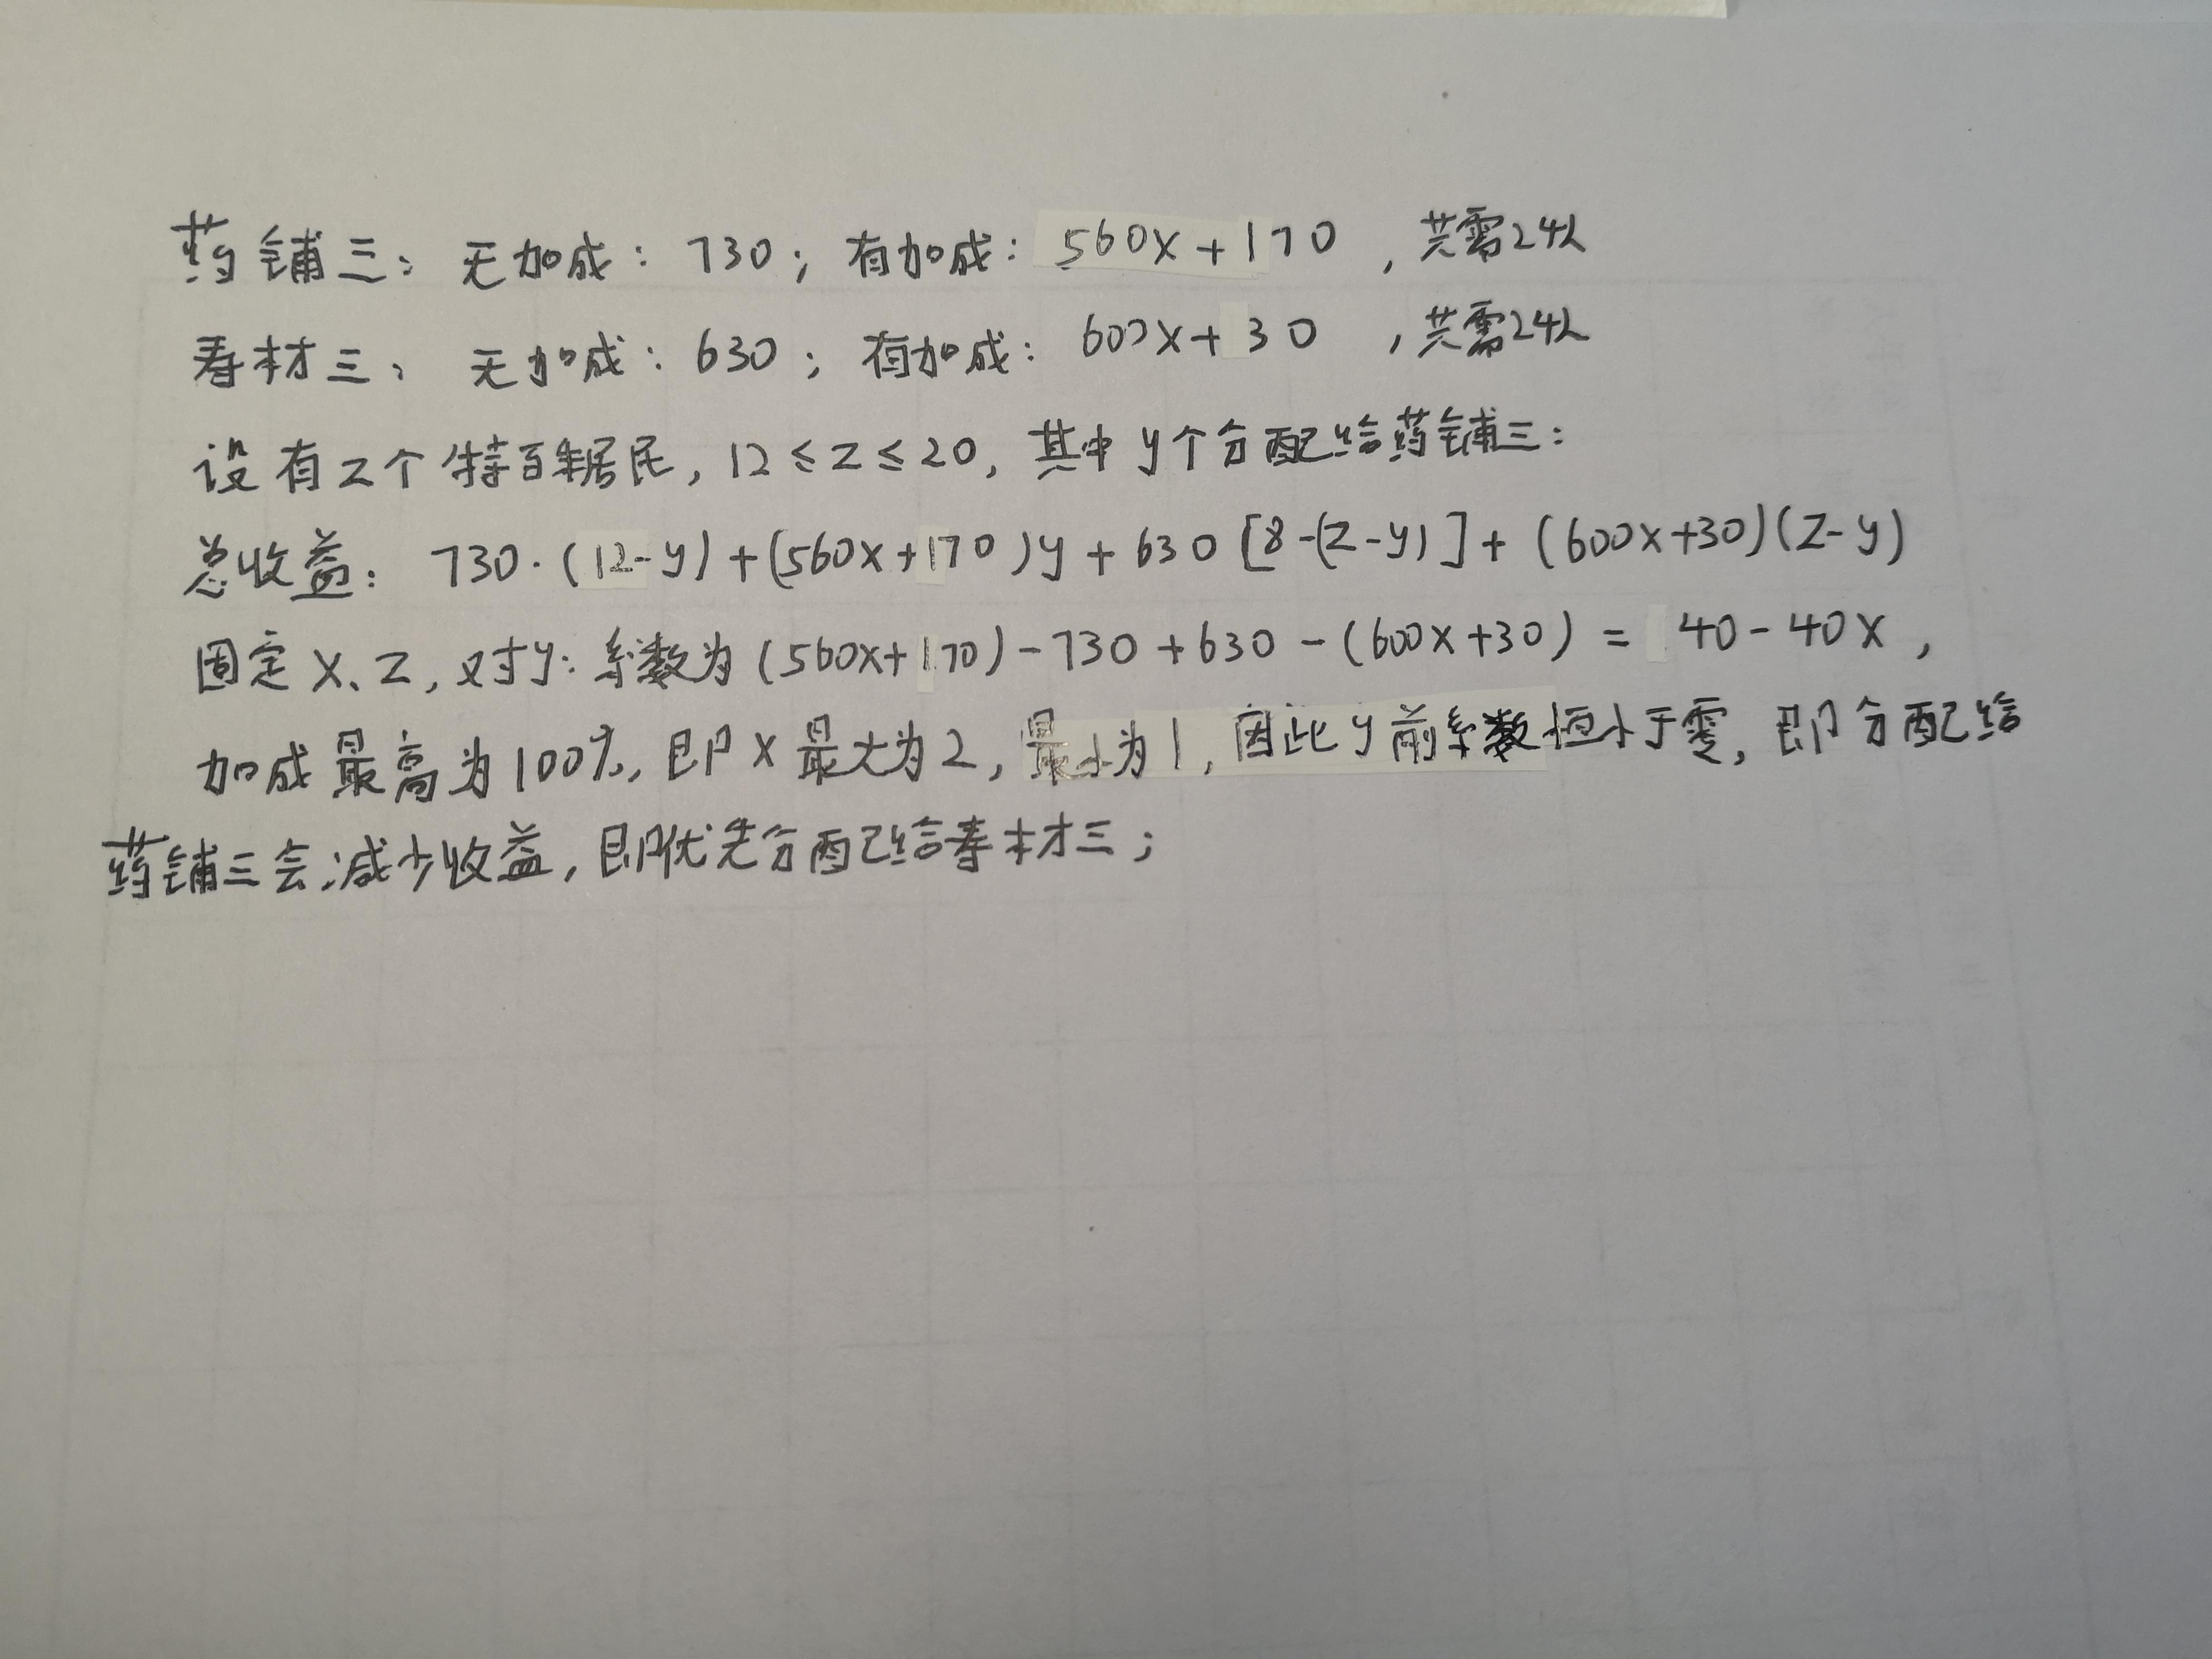 药铺三: 无加成: 730; 有加成: 560x+170 ,共需24人
寿材三: 无加成: 630; 有加成: 600x+30 ,共需24人
设有z个特百赚居民, 12≤z≤20, 其中y个分配给药铺三:
总收益: 730·(12-y)+(560x+170)y+630[8-(z-y)]+(600x+30)(z-y)
固定x、z, 对y: 系数为(560x+170)-730+630-(600x+30)=40-40x,
加成最高为100%, 即x最大为2, 最小为1, 因此y前系数恒小于零, 即分配给
药铺三会减少收益, 即优先分配给寿材三;